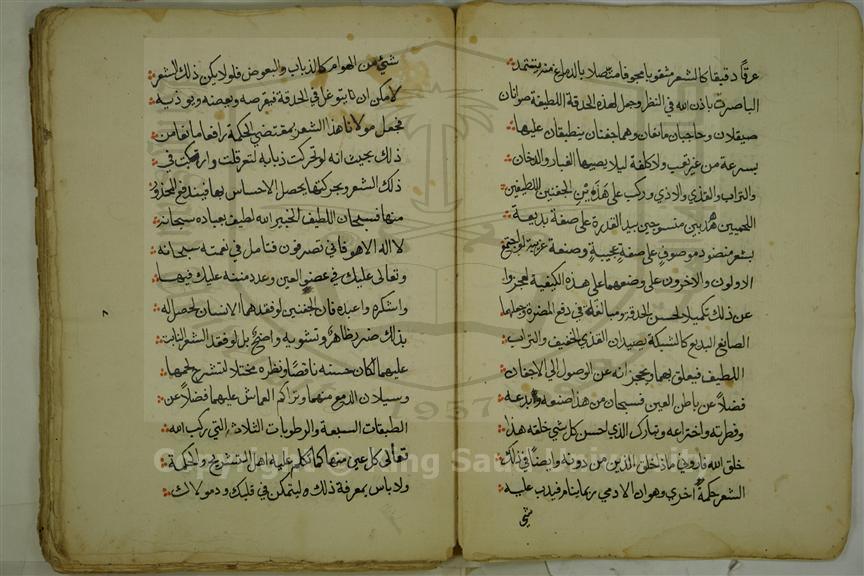 عرقًا دقيقا كالشعر مثقوبا مجوفا متصلا بالدماغ منه يستمد
الباصرة باذن الله في النظر وجعل لهذه الحدقة اللطيفة صوانان
صيقلان وحاجبان مانعان وهما جفنان ينطبقان عليها
بسرعة من غير تعب ولا كلفة ليلا يصيبها الغبار والدخان
والتراب والقذي والاذي وركب على هذين الجفنين اللطيفين
اللحميين هدبين منسوجين بيد القدرة على صفة بديعة
بشعر منضود موصوف على صفة عجيبة وصنعة غريبة لو اجتمع
الاولون والاخرون على وضعهما على هذه الكيفية لعجزوا
عن ذلك تكميلا لحسن الحدقة ومبالغة في دفع المضرة وجعلهما
الصانع البديع كالشبكة يصيدان القذي الخفيف والتراب
اللطيف فيعلق بهما ويحجزانه عن الوصول الى الاجفان
فضلا عن باطن العين فسبحان من هذا صنعه وابدعه
وفطرته واختراعه وتبارك الذي احسن كل شي خلقه هذا
خلق الله فاروني ماذا خلق الذين من دونه وايضا في ذلك
الشعر حكمة اخري وهو ان الادمي ربما ينام فيدب عليه
شي
شيئ من الهوام كالذباب والبعوض فلولا يكن ذلك الشعر
لامكن ان يتوغل في الحدقة فيقرصه وبعضه ويوذيه
فجعل مولانا هذا الشعر بمقتضي الحكمة رافعا مانعا من
ذلك بحيث انه لو تحركت ذبابه لتعرقلت وارتبكت في
ذلك الشعر وبحركتها يحصل الاحساس بها فيندفع المحذور
منها فسبحان اللطيف الخبير الله لطيف بعباده سبحانه
لا اله الا هو فاني تصرفون فتامل في نعمته سبحانه
وتعالى عليك في عضو العين وعدد مننه عليك فيها
واشكره واعبده فان الجفنين لو فقدهما الانسان لحصل له
بذلك ضرر ظاهر وتشويه واضح بل لو فقد الشعر النابت
عليهما لكان حسنه ناقصا ونظره مختلا لتشرح لحمها
وسيلان الدمع منهما وتراكم العماش عليهما فضلا عن
الطبقات السبعة والرطوبات الثلاث التي ركب الله
تعالى كل عين منها كما تكلم عليه اهل التشريح والحكمة
ولا باس بمعرفة ذلك ليتمكن في قلبك ود مولاك
٨
Copyright © King Saud University
1957